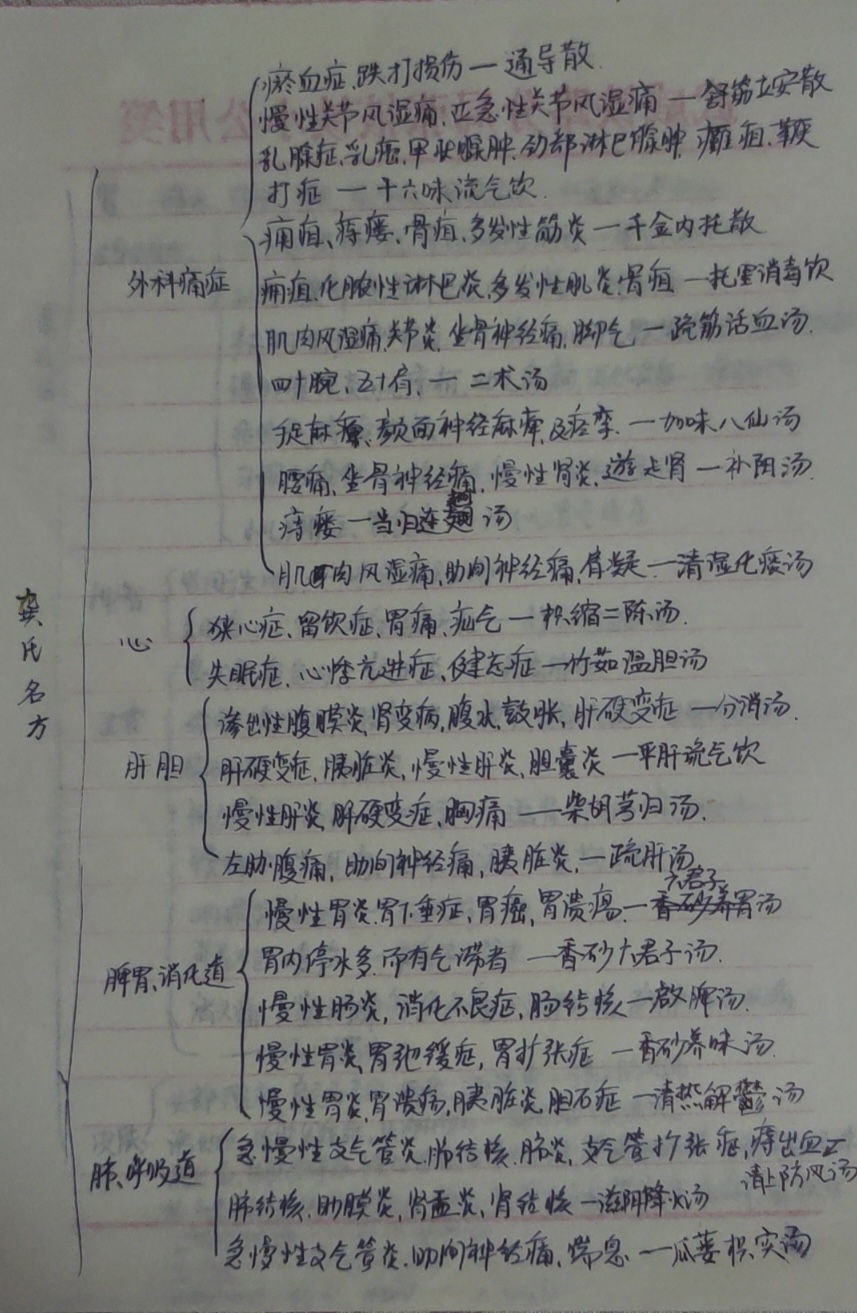 龚氏名方
外科痛症
瘀血症、跌打损伤一通导散
慢性关节风湿痛、亚急性关节风湿痛一舒筋立安散
乳腺症、乳癌、甲状腺肿、幼部淋巴腺肿、痈疽、鞭
打症一十六味流气饮
痈疽、痔瘘、骨疽、多发性筋炎一千金内托散
痈疽、化脓性淋巴炎、多发性肌炎、骨疽一托里消毒饮
肌肉风湿痛、关节炎、坐骨神经痛、脚气、一疏筋活血汤
四十腕、五十肩、一二术汤
手足麻痹、颜面神经麻痹及痉挛、一加味八仙汤
腰痛、坐骨神经痛、慢性肾炎、遊走肾一补阳汤
痔瘘一当归连翘汤
肌肉风湿痛、肋间神经痛、肩凝一清湿化痰汤
心
狭心症、留饮症、胃痛、疝气一枳缩二陈汤
失眠症、心悸亢进症、健忘症一竹茹温胆汤
肝胆
渗出性腹膜炎、肾变病、腹水、鼓胀、肝硬变症一分消汤
肝硬变症、胰脏炎、慢性肝炎、胆囊炎一平肝流气饮
慢性肝炎、肝硬变症、胸痛一柴胡芎归汤
左胁腹痛、肋间神经痛、胰脏炎、一疏肝汤
脾胃、消化道
六君子
慢性胃炎、胃下垂症、胃癌、胃溃疡一香砂养胃汤
胃内停水多、而有气滞者一香砂六君子汤
慢性肠炎、消化不良症、肠结核一启脾汤
慢性胃炎、胃弛缓症、胃扩张症一香砂养味汤
慢性胃炎、胃溃疡、胰脏炎、胆石症一清热解鬱汤
肺、呼吸道
急慢性支气管炎、肺结核、肺炎、支气管扩张症、痔出血
清上防风汤
肺结核、肋膜炎、肾盂炎、肾结核一滋阴降火汤
急慢性支气管炎、肋间神经痛、喘息一瓜蒌枳实汤